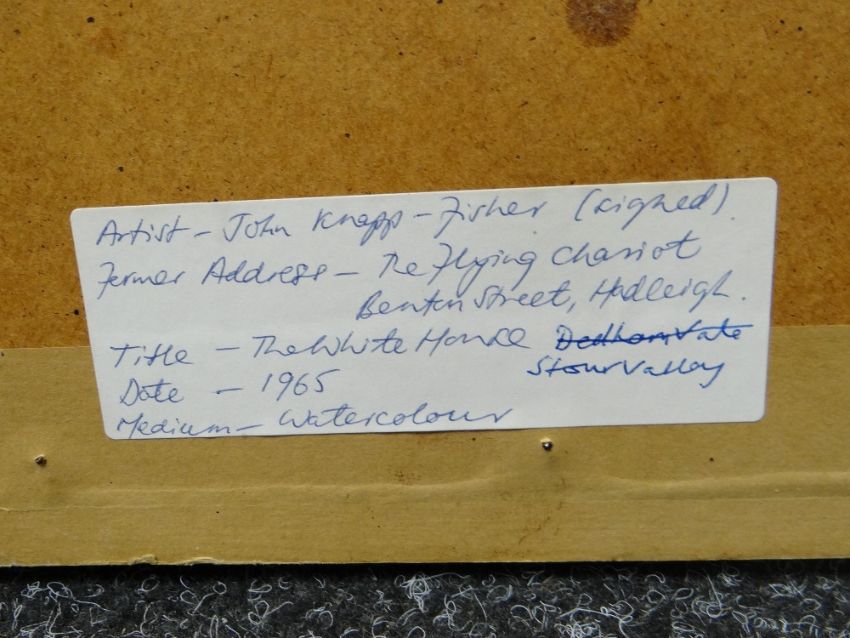 Artist - John Knapp - Fisher (signed).
Former Address - The Flying Chariot
Benton Street, Hadleigh.
Title - The White House Dedham Vale
Stour Valley
Date - 1965
Medium - Watercolour